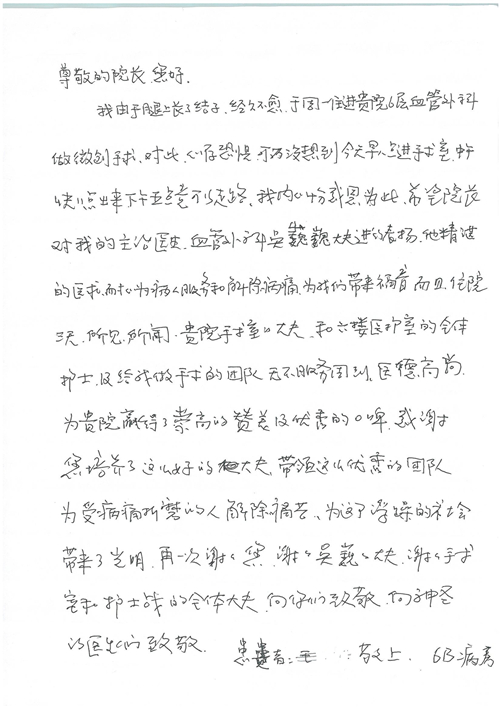 尊敬的院长.您好.
我由于腿上长了结子.经久不愈.于周一住进贵院6层血管外科
做微创手术.对此.心存恐惧.可万没想到今天早八点进手术室.中午
快1点出来下午五点竟可以走路.我内心十分感恩.为此.希望院长
对我的主治医生.血管外科吴巍巍大夫进行表扬.他精湛
的医术.而为病人服务和解除病痛.为我们带来福音而且.住院
三天.所见.所闻.贵院手术室的大夫.和六楼医护室的全体
护士.及给我做手术的团队无不服务周到.医德高尚.
为贵院赢得了崇高的赞美及优秀的口碑.感谢
您培养了这么好的大夫.带领这么优秀的团队
为受病痛折磨的人解除痛苦.为这个浮躁的社会
带来了光明.再一次谢谢您.谢谢吴巍巍大夫.谢谢手术
室和护士战的全体大夫.向你们致敬.向神圣
的医生们致敬.
患者:王 敬上. 6B病房